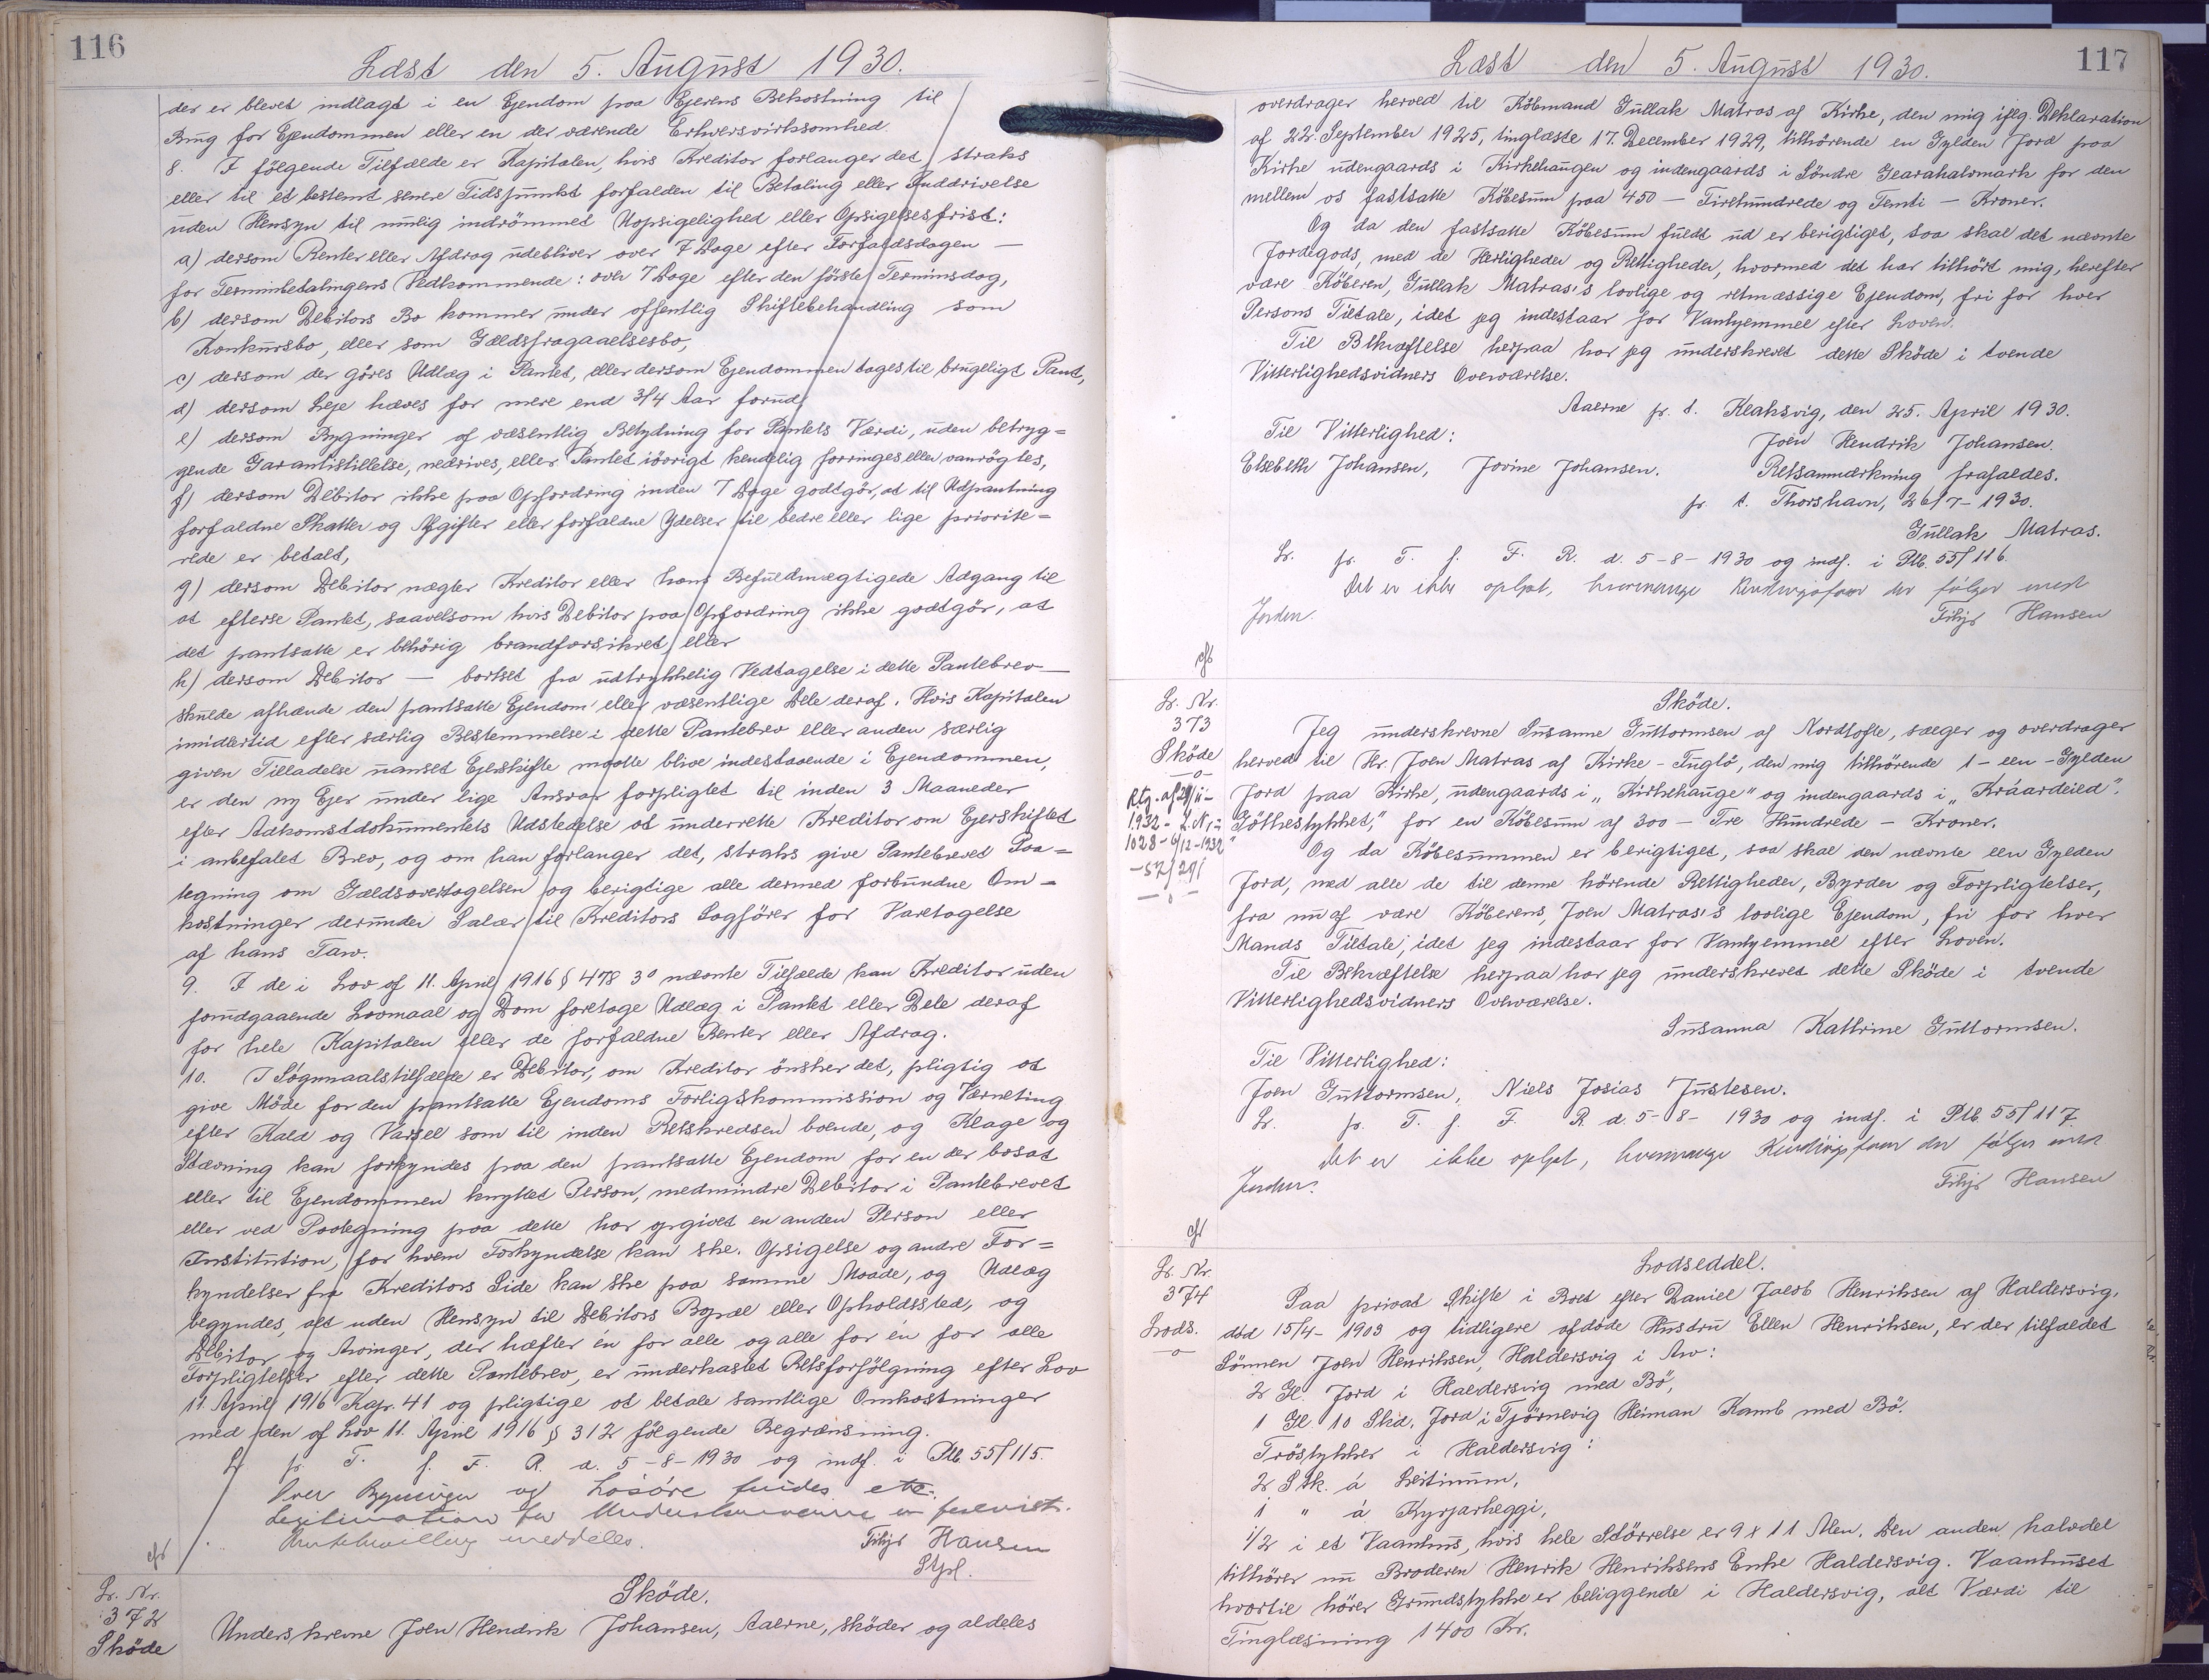 116
Læst den 5. August 1930.
der er blevet indlagt i en Ejendom paa Ejerens Bekostning til
Brug for Ejendommen eller en der værende Erhversvirksomhed.
8. I følgende Tilfælde er Kapitalen, hvis Kreditor forlanger det, straks
eller til et bestemt senere Tidspunkt forfalden til Betaling eller Inddrivelse
uden Hensyn til mulig indrömmet Uopsigelighed eller Opsigelsesfrist:
a) dersom Renter eller Afdrag udebliver over 7 Dage efter Forfaldsdagen —
for Terminbetalingens Vedkommende: over 7 Dage efter den förste Terminsdag,
b) dersom Debitors Bo kommer under offentlig Skiftebehandling som
Konkursbo, eller som Gældsfragaaelsesbo,
c) dersom der göres Udlæg i Pantet, eller dersom Ejendommen tages til brugeligt Pant,
d) dersom Leje hæves for mere end 3/4 Aar forud,
e) dersom Bygninger af væsentlig Betydning for Pantets Værdi, uden betryg=
gende Garantistillelse, nedrives, eller Pantet iövrigt kendelig forringes eller vanrögtes,
f) dersom Debitor ikke paa Opfordring inden 7 Dage godtgör, at til Udpantning
forfaldne Skatter og Afgifter eller forfaldne Ydelser til bedre eller lige priorite=
rede er betalt,
g) dersom Debitor nægter Kreditor eller hans Befuldmægtigede Adgang til
at efterse Pantet, saavelsom hvis Debitor paa Opfordring ikke godtgör, at
det pantsatte er behörig brandforsikret, eller
h) dersom Debitor — bortset fra udtrykkelig Vedtagelse i dette Pantebrev —
skulde afhænde den pantsatte Ejendom eller væsentlige Dele deraf. Hvis Kapitalen
imidlertid efter særlig Bestemmelse i dette Pantebrev eller anden særlig
given Tilladelse uanset Ejerskifte maatte blive indestaaende i Ejendommen,
er den ny Ejer under lige Ansvar forpligtet til inden 3 Maaneder
efter Adkomstdokumentets Udstedelse at underrette Kreditor om Ejerskiftet
i anbefalet Brev, og om han forlanger det, straks give Pantebrevet Paa=
tegning om Gældsovertagelsen og berigtige alle dermed forbundne Om=
kostninger derunder Salær til Kreditors Sagförer for Varetagelse
af hans Tarv.
9. I de i Lov af 11. April 1916 § 478 3º nævnte Tilfælde kan Kreditor uden
forudgaaende Lovmaal og Dom foretage Udlæg i Pantet eller Dele deraf
for hele Kapitalen eller de forfaldne Renter eller Afdrag.
10. I Sögsmaalstilfælde er Debitor, om Kreditor önsker det, pligtig at
give Möde for den pantsatte Ejendoms Forligskommission og Værneting
efter Kald og Varsel som til inden Retskredsen boende, og Klage og
Stævning kan forkyndes paa den pantsatte Ejendom for en der bosat
eller til Ejendommen knyttet Person, medmindre Debitor i Pantebrevet
eller ved Paategning paa dette har opgivet en anden Person eller
Institution, for hvem Forkyndelse kan ske. Opsigelse og andre For=
kyndelser fra Kreditors Side kan ske paa samme Maade, og Udlæg
begyndes, alt uden Hensyn til Debitors Bopæl eller Opholdssted, og
Debitor og Arvinger, der hæfter én for alle og alle for én for alle
Forpligtelser efter dette Pantebrev, er underkastet Retsforfölgning efter Lov
11. April 1916 Kap. 41 og pligtige at betale samtlige Omkostninger
med den af Lov 11. April 1916 § 312 fölgende Begrænsning.
Lr. fr. T. f. F. R. d. 5-8-1930 og indf. i Ptb. 55/115.
Over Bygninger og Lösöre findes etc.
Legitimation for Underskriverne er forevist.
meddeles.
Filip Hansen
Stpl.
cfs
Lr. Nr.
372
Sköde
Sköde.
Underskrevne Joen Hendrik Johansen, Aaerne, sköder og aldeles
117
Læst den 5. August 1930.
overdrager herved til Köbmand Gullak Matras af Kirke, den mig iflg. Deklaration
af 22. September 1925, tinglæste 17. December 1929, tilhörende en Gylden Jord paa
Kirke udengaards i Kirkehaugen og indengaards i Söndre Gearahalsmark for den
mellem os fastsatte Köbesum paa 450 — Firehundrede og Femti — Kroner.
Og da den fastsatte Köbesum fuldt ud er berigtiget, saa skal det nævnte
Jordegods, med de Herligheder og Rettigheder, hvormed det har tilhört mig, herefter
være Köberen, Gullak Matras's lovlige og retmæssige Ejendom, fri for hver
Persons Tiltale, idet jeg indestaar for Vanhjemmel efter Loven.
Til Bekræftelse herpaa har jeg underskrevet dette Sköde i tvende
Vitterlighedsvidners Overværelse.
Aaerne pr. t. Klaksvig, den 25. April 1930.
Til Vitterlighed:
Joen Hendrik Johansen.
Elsebeth Johansen, Jovine Johansen.
Retsanmærkning frafaldes.
pr. t. Thorshavn, 26/7-1930.
Gullak Matras.
Lr. fr. T. f. F. R. d. 5-8-1930 og indf. i Ptb. 55/116.
Det er ikke oplyst, hvormange der følger med
Jorden.
Filip Hansen
cfs
Lr. Nr.
373
Sköde
—o—
Rtg. af 29/11-
1932- L.Nr.
1028- 6/12-1932
-57/291
—o—
Sköde.
Jeg underskrevne Susanne Guttormsen af Nordtofte, sælger og overdrager
herved til Hr. Joen Matras af Kirke-Fuglö, den mig tilhörende 1-een-Gylden
Jord paa Kirke, udengaards i „Kirkehauge" og indengaards i „Kráardeild".
„Göthestykket," for en Köbesum af 300 — Tre Hundrede — Kroner.
Og da Köbesummen er berigtiget, saa skal den nævnte een Gylden
Jord, med alle de til denne hörende Rettigheder, Byrder og Forpligtelser,
fra nu af være Köberens, Joen Matras's lovlige Ejendom, fri for hver
Mands Tiltale, idet jeg indestaar for Vanhjemmel efter Loven.
Til Bekræftelse herpaa har jeg underskrevet dette Sköde i tvende
Vitterlighedsvidners Overværelse.
Susanna Kathrine Guttormsen.
Til Vitterlighed:
Joen Guttormsen, Niels Josias Justesen.
Lr. fr. T. f. F. R. d. 5-8-1930 og indf. i Ptb. 55/117.
Det er ikke oplyst, hvormange der følger med
Jorden.
Filip Hansen
cfs
Lr. Nr.
374
Lods.
—o—
Lodseddel.
Paa privat Skifte i Boet efter Daniel Jacob Henriksen af Haldersvig,
död 15/4-1903 og tidligere afdöde Hustru Ellen Henriksen, er der tilfaldet
Sönnen Joen Henriksen, Haldersvig i Arv:
2 Gl. Jord i Haldersvig med Bö,
1 Gl. 10 Skd. Jord i Tjörnevig Heiman Kamb med Bö.
Tröstykker i Haldersvig:
2 Stk. á Leitinum,
1 " á Kyrjarheggi,
1/2 i et Vaanhus, hvis hele Störrelse er 9 x 11 Alen. Den anden halvdel
tilhörer nu Broderen Henrik Henriksens Enke Haldersvig. Vaanhuset
hvortil hörer Grundstykke er beliggende i Haldersvig, alt Værdi til
Tinglæsning 1400 Kr.